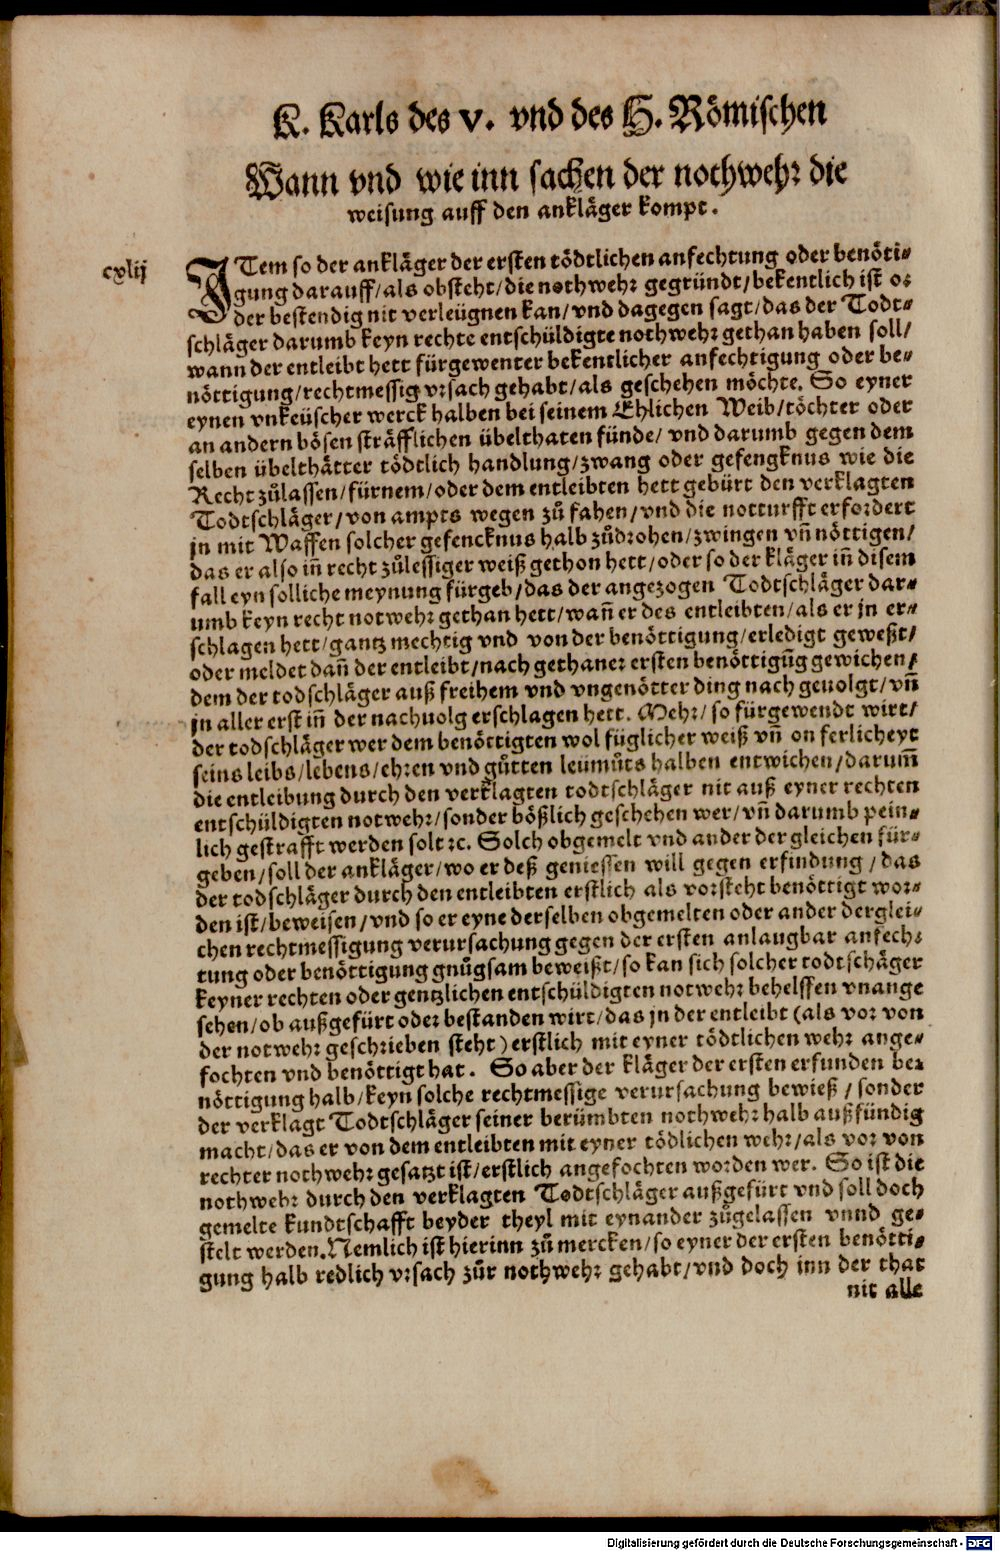 K. Karls des v. vnd des H. Römischen
Wann vnd wie inn sachen der nothwehr die
weisung auff den ankläger kompt.
cxlij
ITem so der ankläger der ersten tödtlichen anfechtung oder benöti-
gung darauff/als obsteht/die nothwehr gegründt/bekentlich ist o-
der bestendig nit verleügnen kan/vnd dagegen sagt/das der Todt-
schläger darumb keyn rechte entschüldigte nothwehr gethan haben soll/
wann der entleibt hett fürgewenter bekentlicher anfechtigung oder be-
nöttigung/rechtmessig vrsach gehabt/als geschehen möchte. So eyner
eynen vnkeüscher werck halben bei seinem Ehlichen Weib/töchter oder
an andern bösen sträfflichen übelthaten fünde/ vnd darumb gegen dem
selben übelthätter tödtlich handlung/zwang oder gefengknus wie die
Recht zůlassen/fürnem/oder dem entleibten hett gebürt den verklagten
Todtschläger/von ampts wegen zů fahen/vnd die notturfft erfordert
jn mit Waffen solcher gefencknus halb zůdrohen/zwingen vñ nöttigen/
das er also iñ recht zůlessiger weiß gethon hett/oder so der kläger iñ disem
fall eyn solliche meynung fürgeb/das der angezogen Todtschläger dar-
umb keyn recht notwehr gethan hett/wañ er des entleibten/als er jn er-
schlagen hett/gantz mechtig vnd von der benöttigung/erledigt geweßt/
oder meldet dañ der entleibt/nach gethaner ersten benöttigũg gewichen/
dem der todschläger auß freihem vnd vngenötter ding nach geuolgt/vñ
jn aller erst iñ der nachuolg erschlagen hett. Mehr/so fürgewendt wirt/
der todschläger wer dem benöttigten wol füglicher weiß vñ on ferlicheyt
seins leibs/lebens/ehren vnd gůtten leümůts halben entwichen/darum̃
die entleibung durch den verklagten todtschläger nit auß eyner rechten
entschüldigten notwehr/sonder bößlich geschehen wer/vñ darumb pein-
lich gestrafft werden solt ꝛc. Solch obgemelt vnd ander der gleichen für-
geben/soll der ankläger/wo er deß geniessen will gegen erfindung/das
der todschläger durch den entleibten erstlich als vorsteht benöttigt wor-
den ist/beweisen/vnd so er eyne derselben obgemelten oder ander derglei-
chen rechtmessigung verursachung gegen der ersten anlaugbar anfech-
tung oder benöttigung gnůgsam beweißt/so kan sich solcher todtschäger
keyner rechten oder gentzlichen entschüldigten notwehr behelffen vnange
sehen/ob außgefürt oder bestanden wirt/das jn der entleibt (als vor von
der notwehr geschrieben steht) erstlich mit eyner tödtlichen wehr ange-
fochten vnd benöttigt hat. So aber der kläger der ersten erfunden be-
nöttigung halb/keyn solche rechtmessige verursachung bewieß/sonder
der verklagt Todtschläger seiner berümbten nothwehr halb außfündig
macht/das er von dem entleibten mit eyner tödlichen wehr/als vor von
rechter nothwehr gesatzt ist/erstlich angefochten worden wer. So ist die
nothwehr durch den verklagten Todtschläger außgefürt vnd soll doch
gemelte kundtschafft beyder theyl mit eynander zůgelassen vnnd ge-
stelt werden.Nemlich ist hierinn zů mercken/so eyner der ersten benötti-
gung halb redlich vrsach zůr nothwehr gehabt/vnd doch inn der that
nit alle
Digitalisierung gefördert durch die Deutsche Forschungsgemeinschaft - DFG